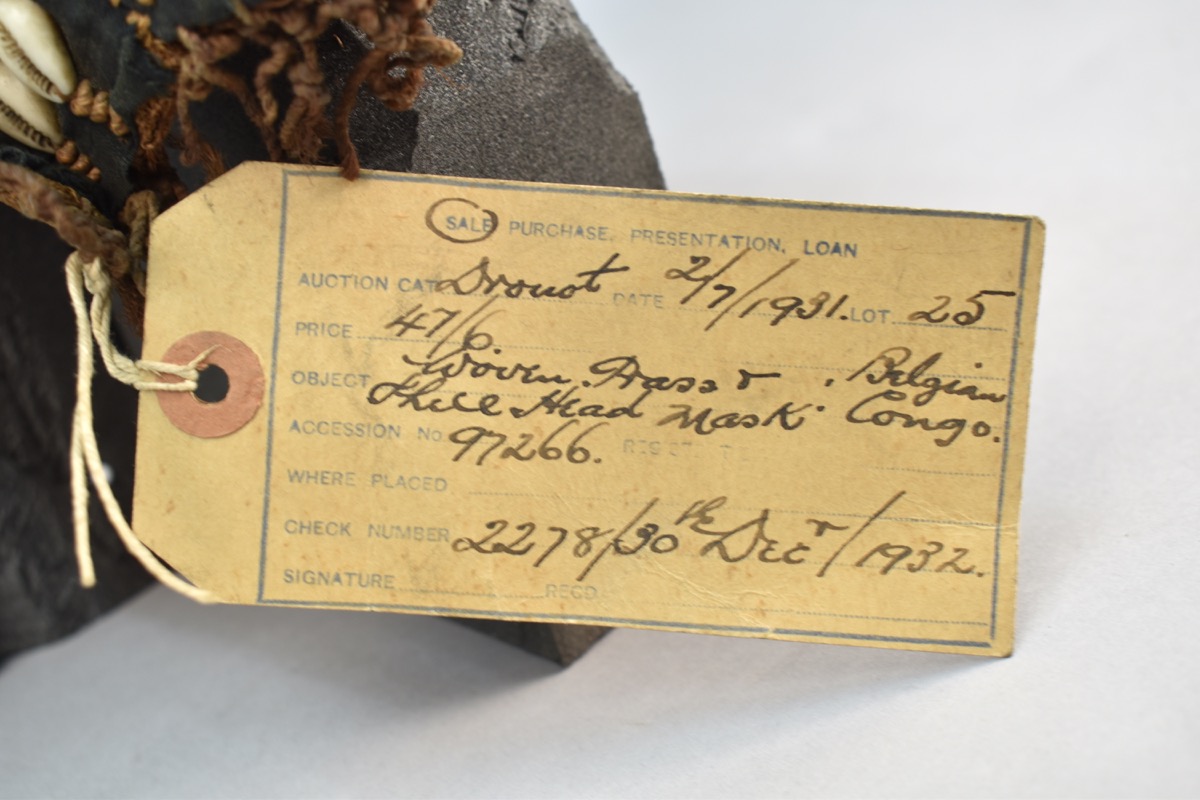 SALE PURCHASE. PRESENTATION, LOAN
AUCTION CAT Drouot DATE 2/7/1931. LOT 25
PRICE 47/6.
OBJECT Woven, Grass & Shell Head Mask. Belgian Congo.
ACCESSION No 97266.
WHERE PLACED
CHECK NUMBER 2278/30th Decr/1932.
SIGNATURE RECD